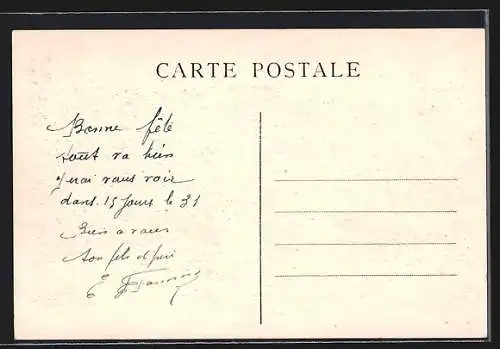 CARTE POSTALE
Bonne fête
tout va bien
j'irai vous voir
dans 15 jours le 31
Bien a vous
ton fils
E